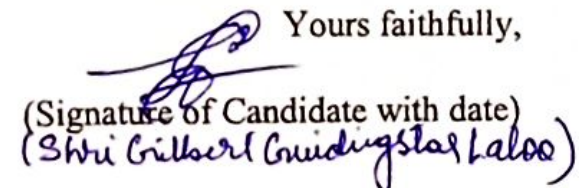 Yours faithfully,
(Signature of Candidate with date)
(Shri Gilbert Guidingstar Laloo)